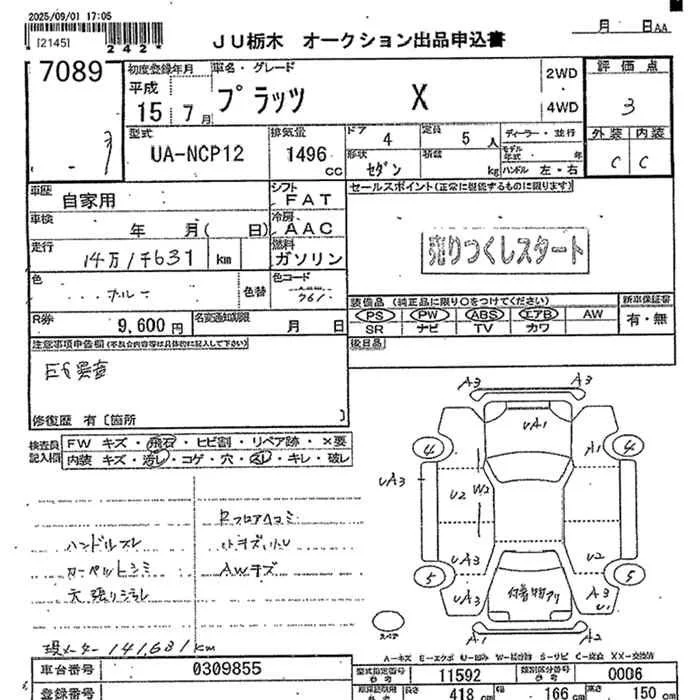 2025/09/01 17:05
[2145]
242*
JU栃木 オークション出品申込書
月 日AA
7089
初度登録年月
車名・グレード
平成
15年 7月
プラッツ X
2WD
4WD
評価点
3
外装 内装
C C
型式
UA-NCP12
排気量
1496 cc
ドア 4
定員 5人
形状 セダン
積載 kg
ディーラー・並行
モデル年式 年
ハンドル 左・右
車歴
自家用
シフト
FAT
セールスポイント(正常に機能するものに限ります)
売りつくしスタート
車検
年 月( 日)
冷房
AAC
走行
14万1千631 km
燃料
ガソリン
色
ブルー
色替
色コード
761
R券
9,600円
名変通知期限
月 日
装備品 (純正品に限り○をつけてください)
PS PW ABS エアB AW
SR ナビ TV カワ
新車保証書
有・無
後日品
注意事項申告欄(不具合内容等は具体的に記入して下さい)
Eg異音
修復歴 有〔箇所 〕
検査員記入欄
FW キズ・飛石・ヒビ割・リペア跡・×要
内装 キズ・汚レ・コゲ・穴・スレ・キレ・破レ
ハンドルスレ
カーペットシミ
天張り汚レ
Rフロアヘコミ
AWキズ
現メーター141,631km
A3 A3
uA1
4 A1 4
uA3
u2 W2
uA3 u2
5 5
uA3
付着物アリ
A3
u1
A1 A2
スペア
A-キズ E-エクボ U-凹み W-補修跡 S-サビ C-腐食 XX-交換済
車台番号
0309855
型式指定番号
11592
類別区分番号
0006
登録番号
長さ 418 cm
幅 166 cm
高さ 150 cm